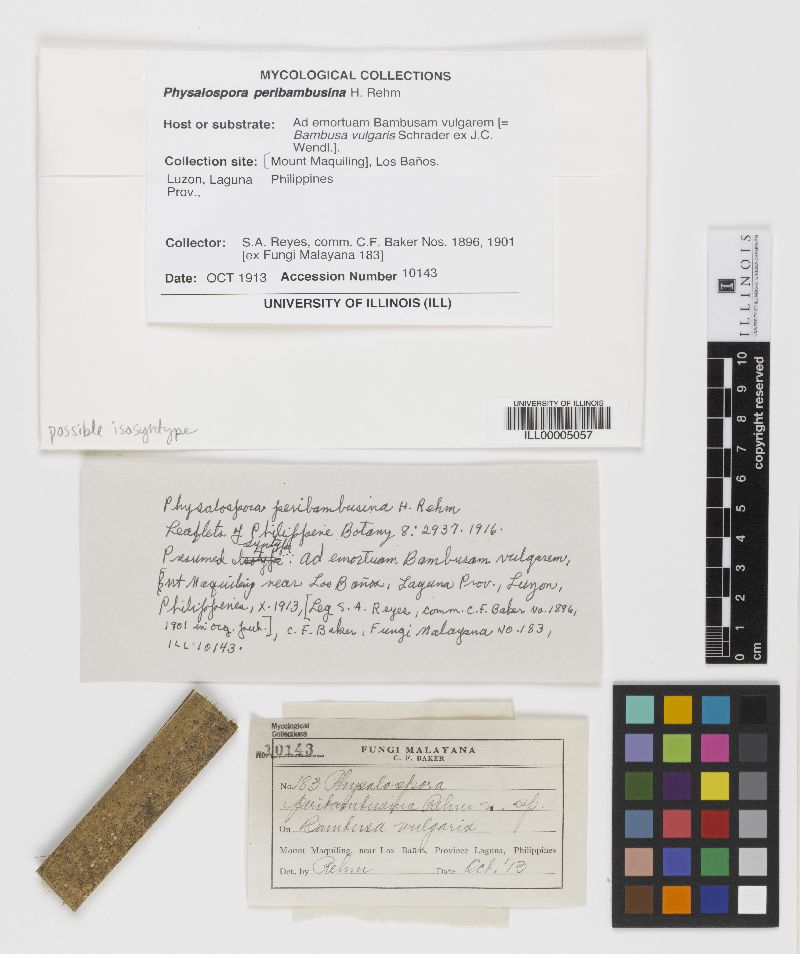 MYCOLOGICAL COLLECTIONS
Physalospora peribambusina H. Rehm
Host or substrate: Ad emortuam Bambusam vulgarem [=
Bambusa vulgaris Schrader ex J.C.
Wendl.].
Collection site: [Mount Maquiling], Los Baños.
Luzon, Laguna Philippines
Prov.,
Collector: S.A. Reyes, comm. C.F. Baker Nos. 1896, 1901
[ex Fungi Malayana 183]
Date: OCT 1913 Accession Number 10143
UNIVERSITY OF ILLINOIS (ILL)
possible isosyntype
UNIVERSITY OF ILLINOIS
ILL00005057
Physalospora peribambusina H. Rehm
Leaflets of Philippine Botany 8: 2937. 1916.
syntype
Presumed Isotype: Ad emortuam Bambusam vulgarem,
Mt Maquiling near Los Baños, Laguna Prov., Luzon,
Philippines, X. 1913, [Leg S. A. Reyes, comm. C.F. Baker No. 1896,
1901 in org. pub.], C. F. Baker, Fungi Malayana No. 183,
ILL 10143.
Mycological
Collections
No. 10143
FUNGI MALAYANA
C. F. BAKER
No. 183 Physalospora
peribambusina Rehm n. sp.
On Bambusa vulgaris
Mount Maquiling, near Los Baños, Province Laguna, Philippines
Det. by Rehm Date Oct. '13
I
ILLINOIS
0 1 2 3 4 5 6 7 8 9 10
cm
copyright reserved